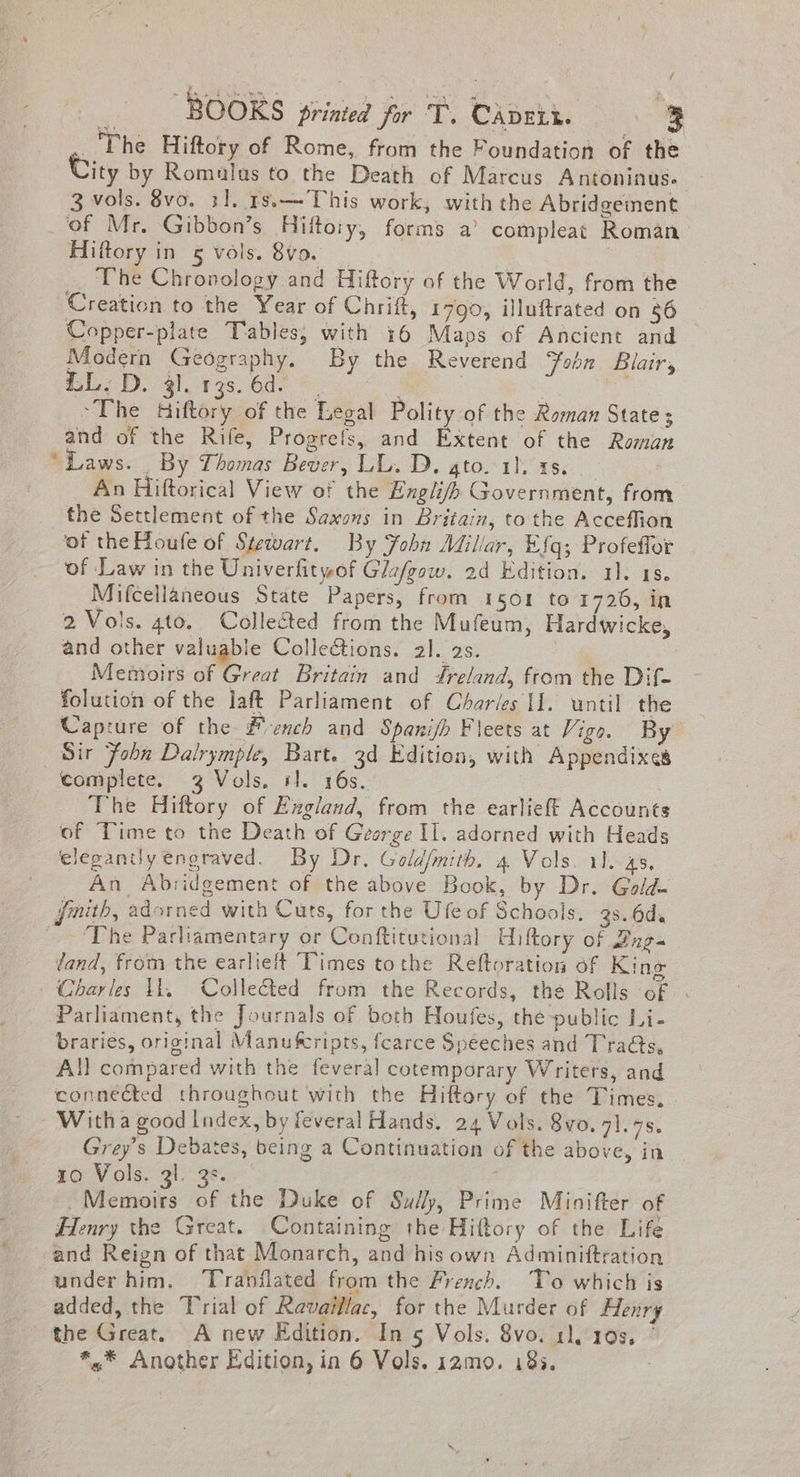 BOOKS printed for T. CADELL. 3
The Hiſtory of Rome, from the Foundation of the
City by Romulus to the Death of Marcus Antoninus.
3 vols. 8vo. 1l. 1s.—This work, with the Abridgement
of Mr. Gibbon's Hiſtory, forms a compleat Roman
Hiſtory in 5 vols. 8vo.
The Chronology and Hiſtory of the World, from the
Creation to the Year of Chriſt, 1790, illuſtrated on 56
Copper-plate Tables; with 16 Maps of Ancient and
Modern Geography. By the Reverend John Blair,
LL. D. 3l. 13s. 6d.
The Hiſtory of the Legal Polity of the Roman State;
and of the Riſe, Progreſs, and Extent of the Roman
Laws. By Thomas Bever, LL. D. 4to. 1l. 1s.
An Hiſtorical View of the Engliſh Government, from
the Settlement of the Saxons in Britain, to the Acceſſion
of the Houſe of Stewart. By John Millar, Eſq; Profeſſor
of Law in the Univerſity of Glaſgow. 2d Edition. 1l. 1s.
Miſcellaneous State Papers, from 1501 to 1726, in
2 Vols. 4to. Collected from the Muſeum, Hardwicke,
and other valuable Collections. 2l. 2s.
Memoirs of Great Britain and Ireland, from the Diſ-
ſolution of the laſt Parliament of Charles II. until the
Capture of the French and Spaniſh Fleets at Vigo. By
Sir John Dalrymple, Bart. 3d Edition, with Appendixes
complete. 3 Vols. 1l. 16s.
The Hiſtory of England, from the earlieſt Accounts
of Time to the Death of George II. adorned with Heads
elegantly engraved. By Dr. Goldſmith. 4 Vols. 1l. 4s.
An Abridgement of the above Book, by Dr. Gold-
ſmith, adorned with Cuts, for the Uſe of Schools. 3s. 6d.
The Parliamentary or Conſtitutional Hiſtory of Eng-
land, from the earlieſt Times to the Reſtoration of King
Charles II. Collected from the Records, the Rolls of
Parliament, the Journals of both Houſes, the public Li-
braries, original Manuſcripts, ſcarce Speeches and Tracts,
All compared with the ſeveral cotemporary Writers, and
connected throughout with the Hiſtory of the Times,
With a good Index, by ſeveral Hands. 24 Vols. 8vo. 7l. 7s.
Grey's Debates, being a Continuation of the above, in
10 Vols. 3l. 3s.
Memoirs of the Duke of Sully, Prime Miniſter of
Henry the Great. Containing the Hiſtory of the Life
and Reign of that Monarch, and his own Adminiſtration
under him. Tranſlated from the French. To which is
added, the Trial of Ravaillac, for the Murder of Henry
the Great. A new Edition. In 5 Vols. 8vo. 1l. 10s.
*⁎* Another Edition, in 6 Vols. 12mo. 18s.